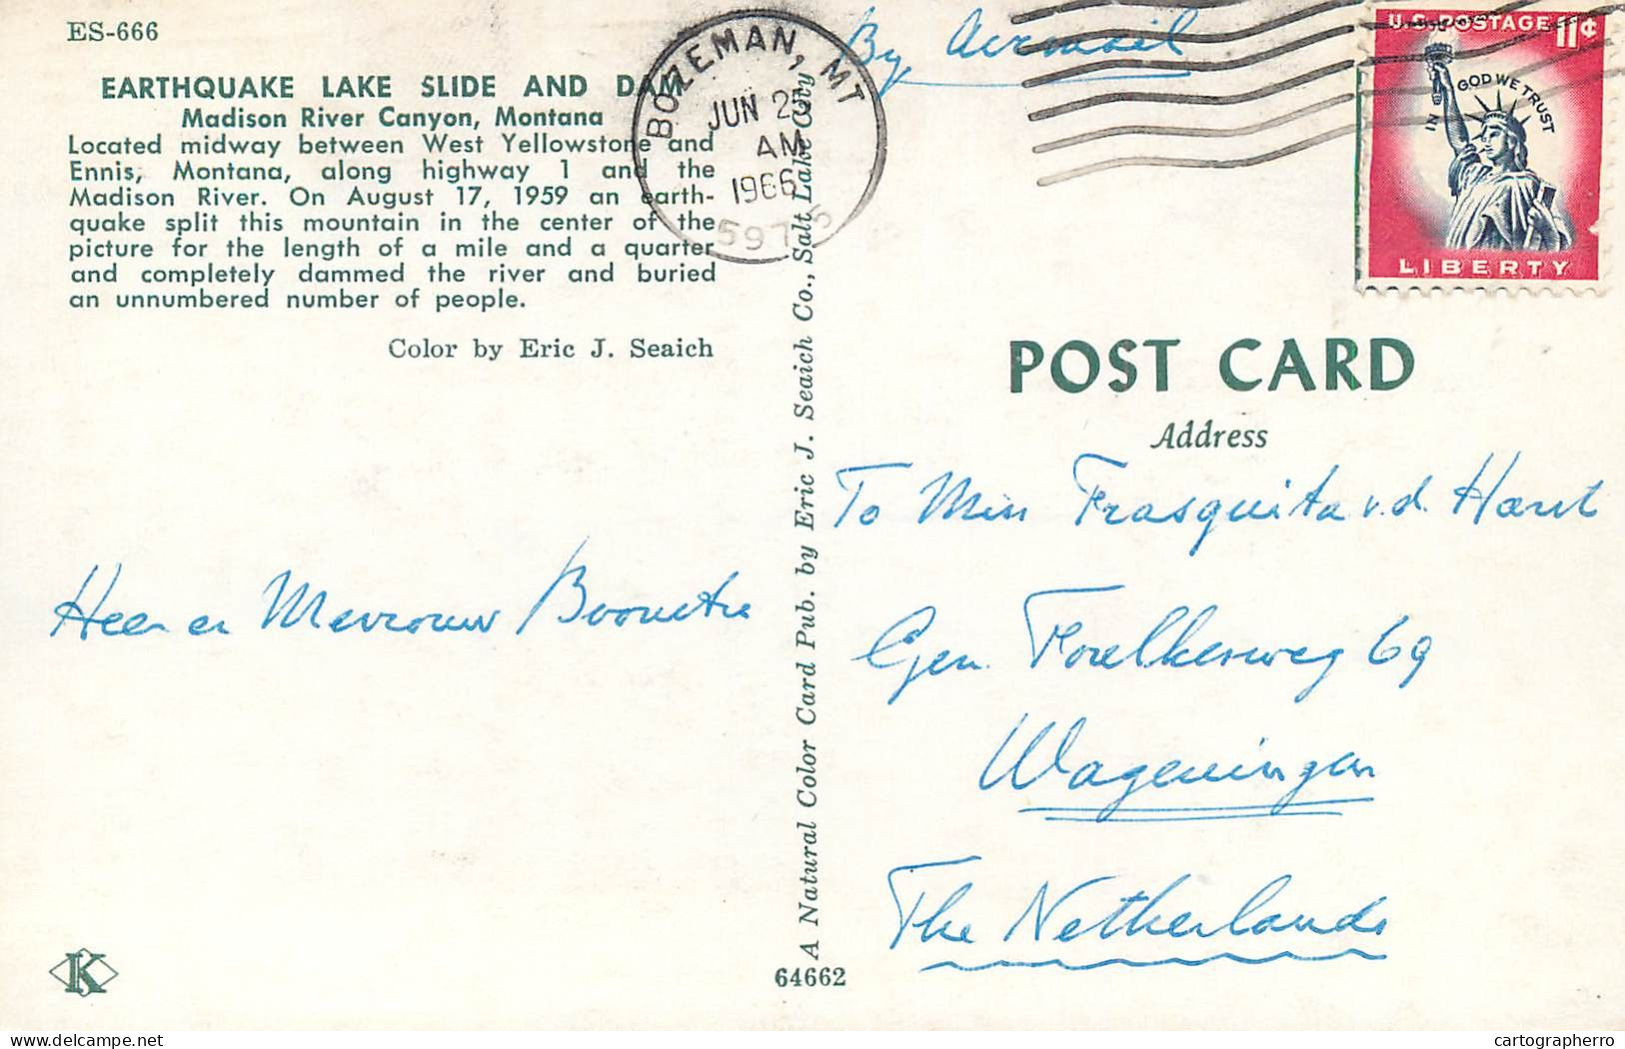 ES-666
EARTHQUAKE LAKE SLIDE AND DAM
Madison River Canyon, Montana
Located midway between West Yellowstone and
Ennis, Montana, along highway 1 and the
Madison River. On August 17, 1959 an earth-
quake split this mountain in the center of the
picture for the length of a mile and a quarter
and completely dammed the river and buried
an unnumbered number of people.
Color by Eric J. Seaich
Heer en Mevrouw
K
A Natural Color Card Pub. by Eric J. Seaich Co., Salt Lake City
64662
BOZEMAN, MT
JUN 2
AM
1966
5971
By Airmail
U.S. POSTAGE 11¢
IN GOD WE TRUST
LIBERTY
POST CARD
Address
To Miss Frasquita v.d. Hart
Gen. Foulkesweg 69
Wageningen
The Netherlands
cartographerro